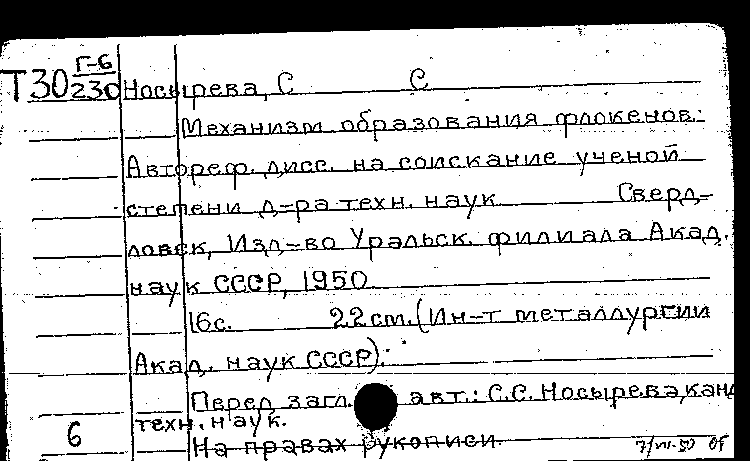 Г-6
Т30 230 Носырева, С С
Механизм образования флокенов:
Автореф. дисс. на соискание ученой
степени д-ра техн. наук Сверд-
ловск, Изд-во Уральск. филиала Акад.
наук СССР, 1950
16с. 22 см. (Ин-т металлургии
Акад. наук СССР).
Перед загл. авт.: С.С. Носырева, канд
техн. наук.
6 На правах рукописи.